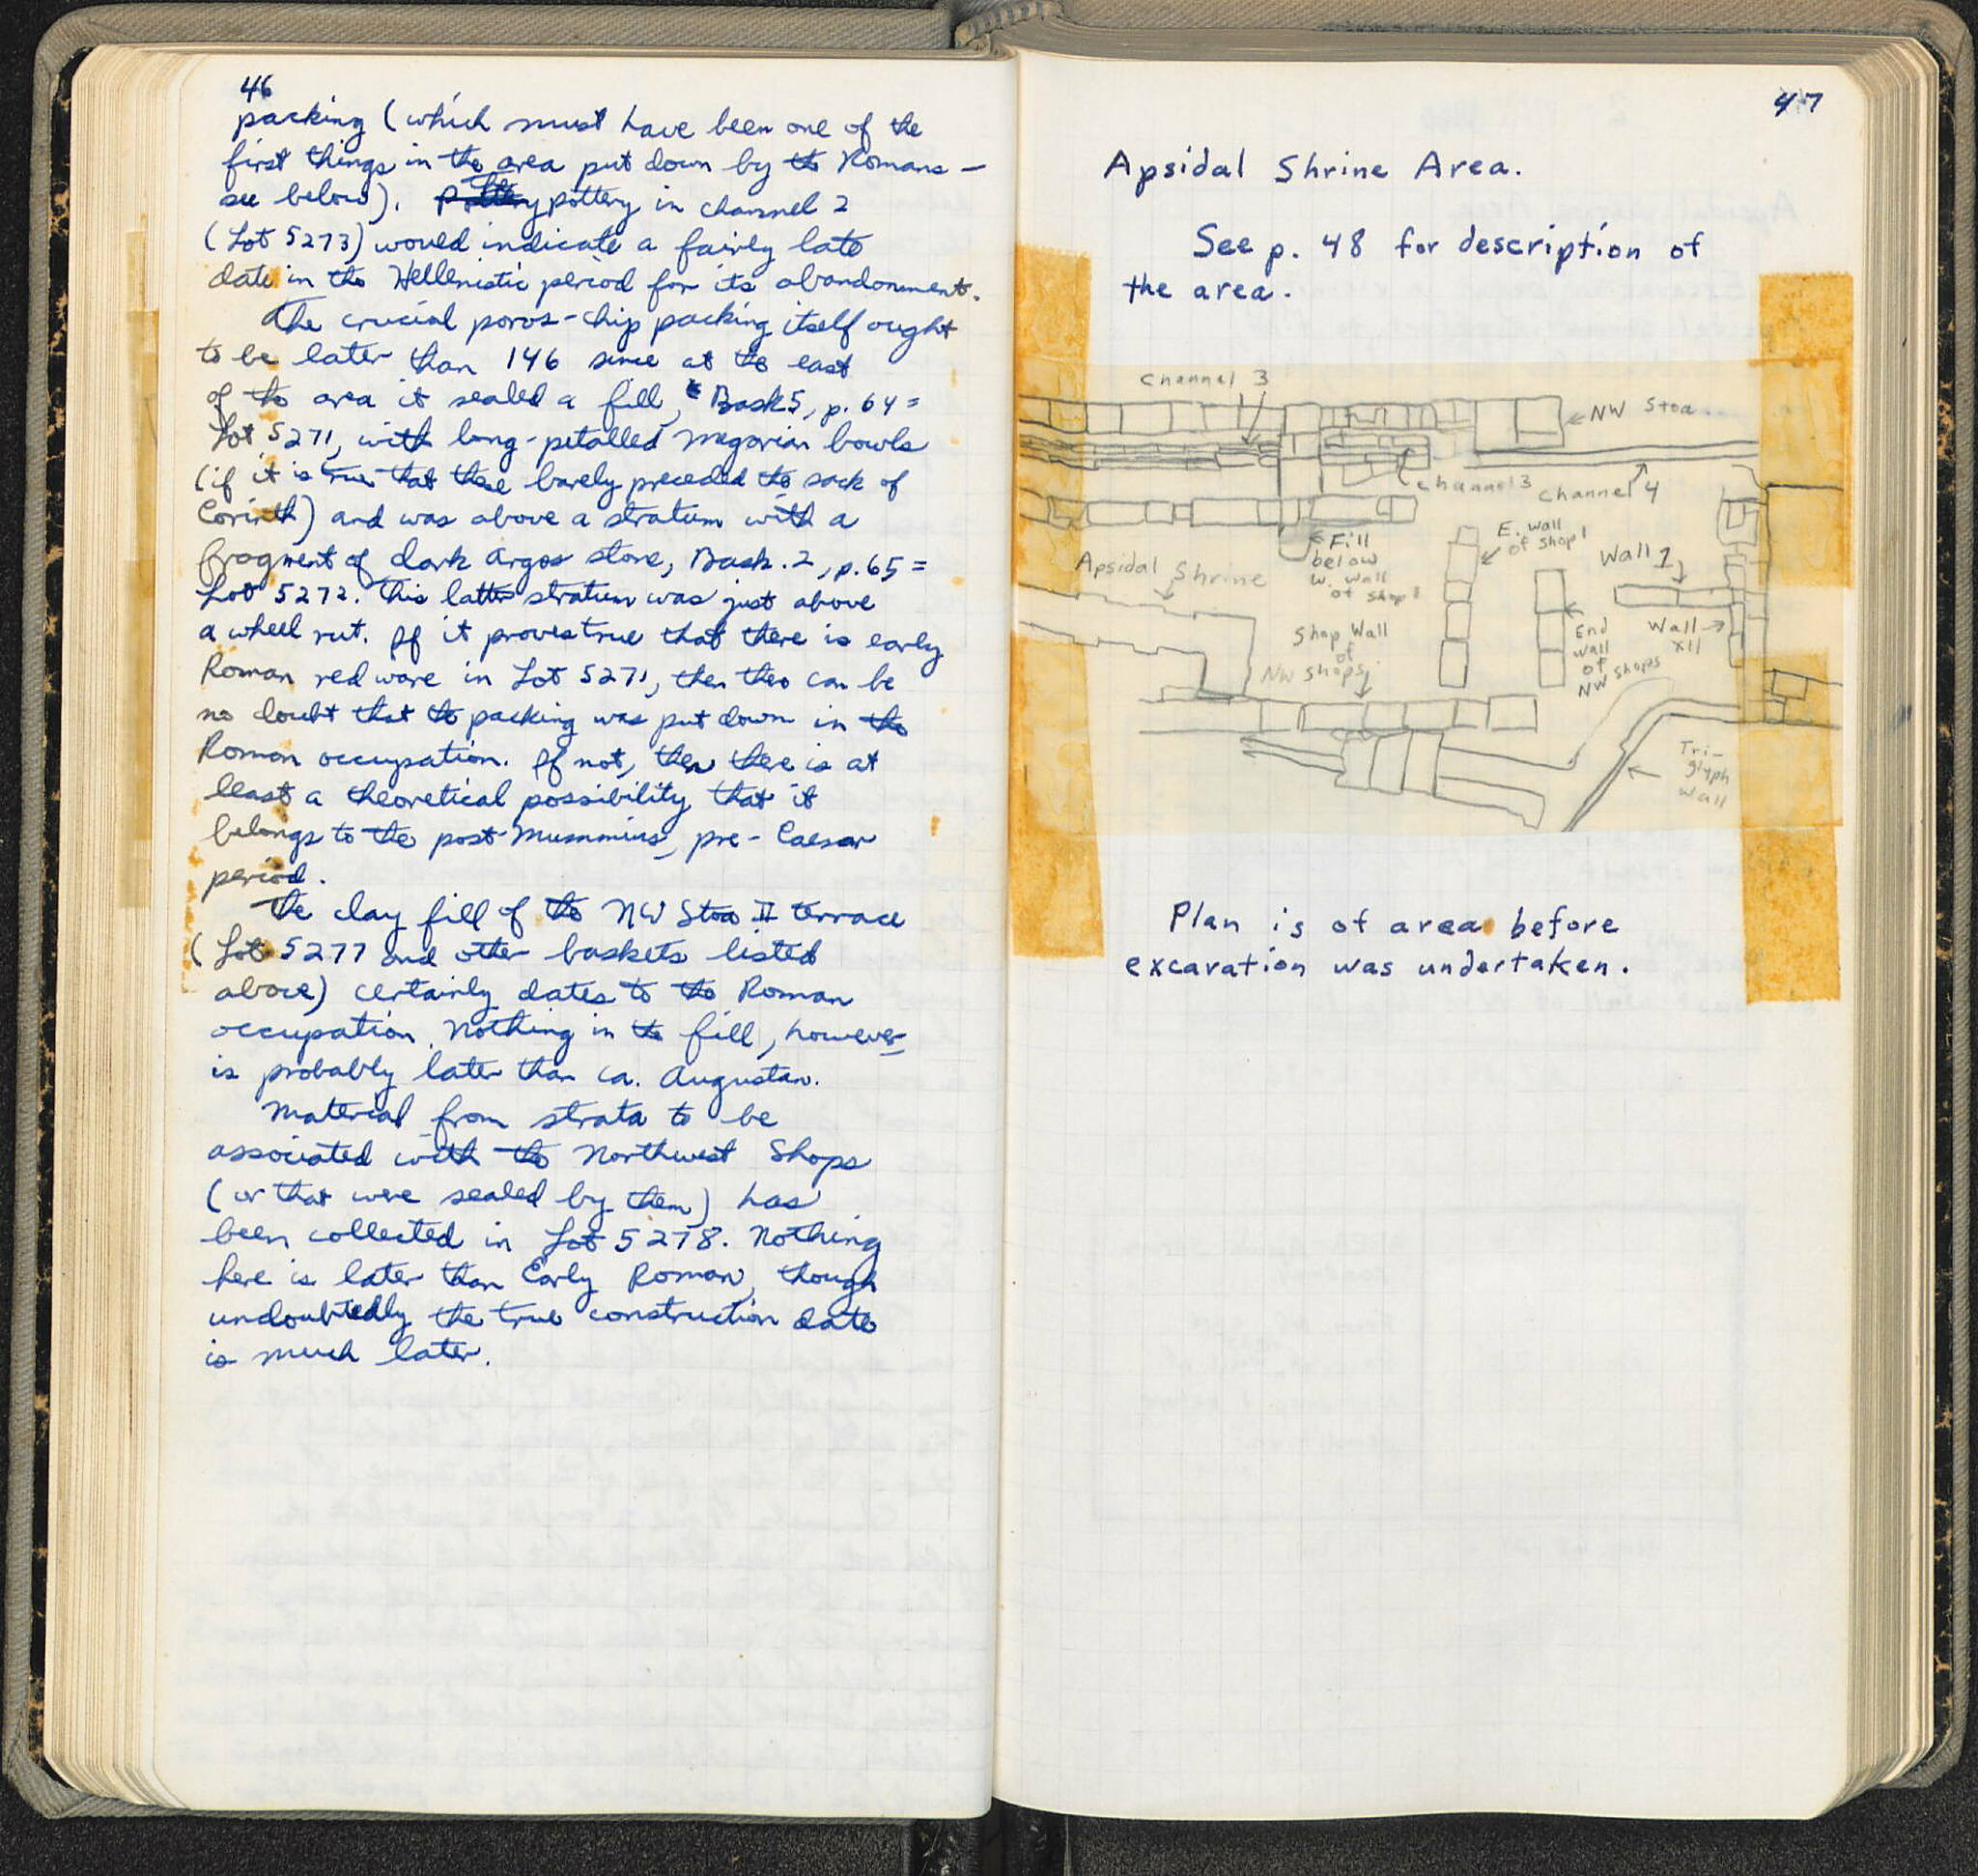 46
packing (which must have been one of the
first things in the area put down by the Romans –
see below). Pottery pottery in channel 2
(Lot 5273) would indicate a fairly late
date in the Hellenistic period for its abandonment.
The crucial poros-chip packing itself ought
to be later than 146 since at the east
of the area it sealed a fill, Bask 5, p. 64 =
Lot 5271, with long-petalled megarian bowls
(if it is true that these barely preceded the sack of
Corinth) and was above a stratum with a
fragment of dark Argos stone, Bask. 2, p. 65 =
Lot 5272. This latter stratum was just above
a wheel rut. If it proves true that there is early
Roman red ware in Lot 5271, then there can be
no doubt that the packing was put down in the
Roman occupation. If not, then there is at
least a theoretical possibility that it
belongs to the post-Mummius, pre-Caesar
period.
The clay fill of the NW Stoa II terrace
(Lot 5277 and other baskets listed
above) certainly dates to the Roman
occupation. Nothing in the fill, however
is probably later than ca. Augustan.
Material from strata to be
associated with the Northwest Shops
(or that were sealed by them) has
been collected in Lot 5278. Nothing
here is later than Early Roman, though
undoubtedly the true construction date
is much later.
47
Apsidal Shrine Area.
See p. 48 for description of
the area.
Channel 3
NW Stoa
Channel 3
Channel 4
E. wall
of Shop 1
Fill
below
W. wall
of Shop 1
Wall 1
Apsidal Shrine
Shop Wall
of
NW Shops
End
wall
of
NW Shops
Wall
XII
Tri-
glyph
Wall
Plan is of area before
excavation was undertaken.